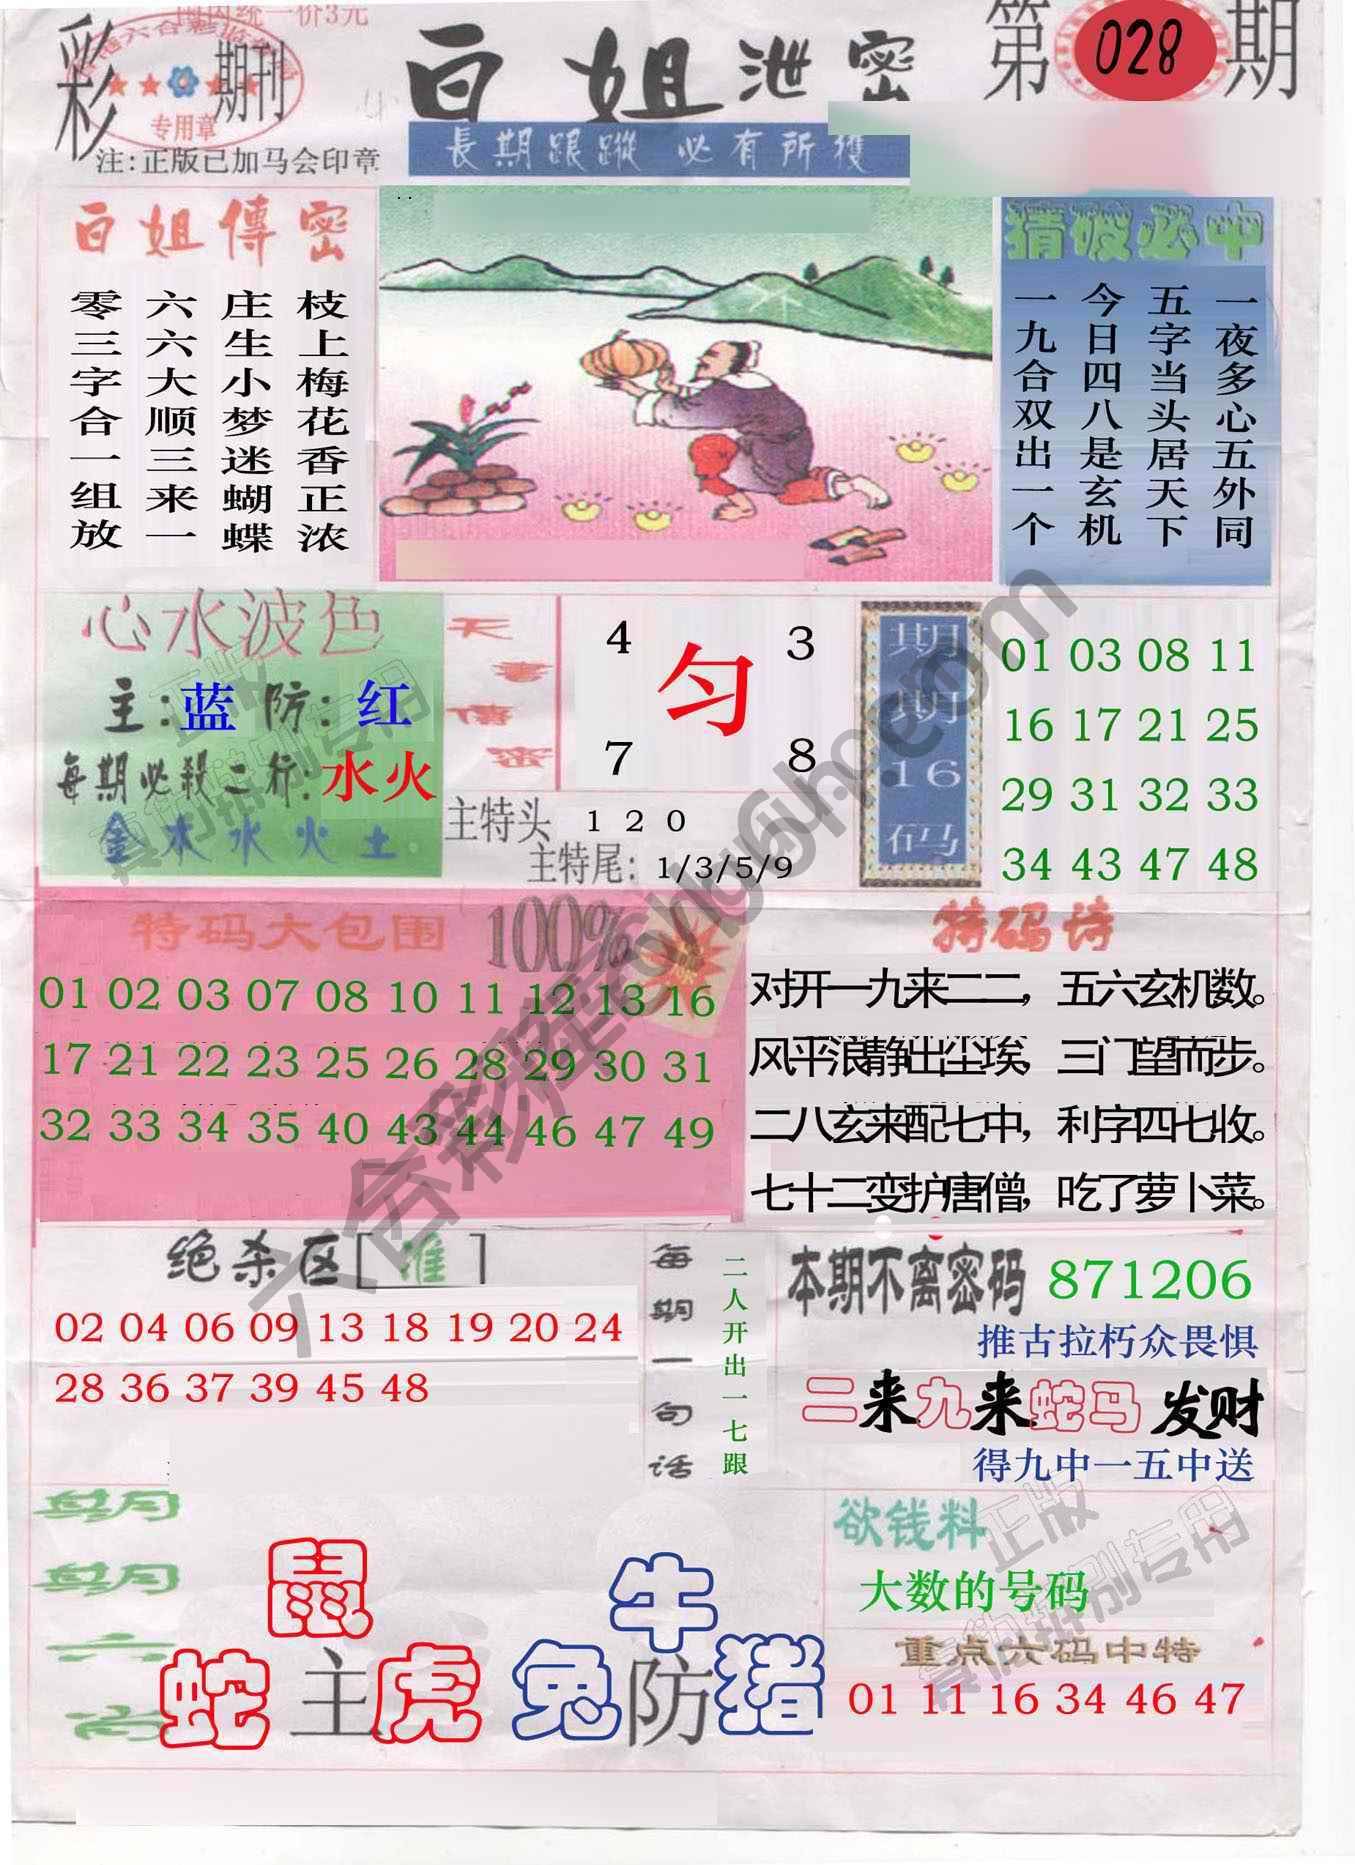 国内统一价3元
彩
期刊
专用章
注:正版已加马会印章
白姐泄密
第028期
長期跟蹤 必有所獲
白姐傳密
枝上梅花香正浓
庄生小梦迷蝴蝶
六六大顺三来一
零三字合一组放
猜破必中
一夜多心五外同
五字当头居天下
今日四八是玄机
一九合双出一个
心水波色
主:蓝 防:红
每期必殺二行:水火
金木水火土
天書傳密
4 3
匀
7 8
主特头 1 2 0
主特尾: 1/3/5/9
期期16码
01 03 08 11
16 17 21 25
29 31 32 33
34 43 47 48
特码大包围 100%
01 02 03 07 08 10 11 12 13 16
17 21 22 23 25 26 28 29 30 31
32 33 34 35 40 43 44 46 47 49
特码诗
对开一九来二二，五六玄机数。
风平浪静出尘埃，三门望而步。
二八玄来配七中，利字四七收。
七十二变护唐僧，吃了萝卜菜。
绝杀区[准]
02 04 06 09 13 18 19 20 24
28 36 37 39 45 48
每期一句话
二人开出一七跟
本期不离密码 871206
推古拉朽众畏惧
二来九来蛇马发财
得九中一五中送
期期六肖
鼠
蛇主虎
牛
兔防猪
欲钱料
大数的号码
重点六码中特
01 11 16 34 46 47
正版
真的拼刷专用
正版
真的拼刷专用